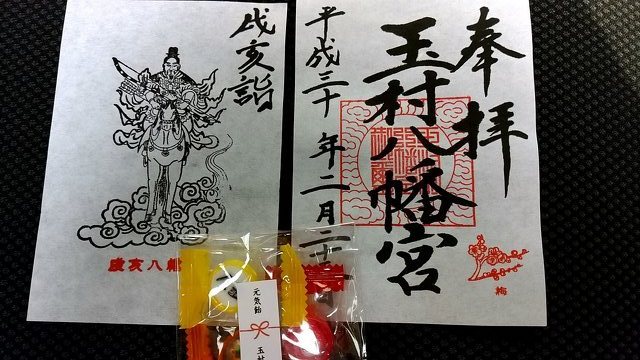 奉拝
玉村八幡宮
平成三十年二月二十
梅
戌亥詣
戌亥八幡
元気飴
玉村